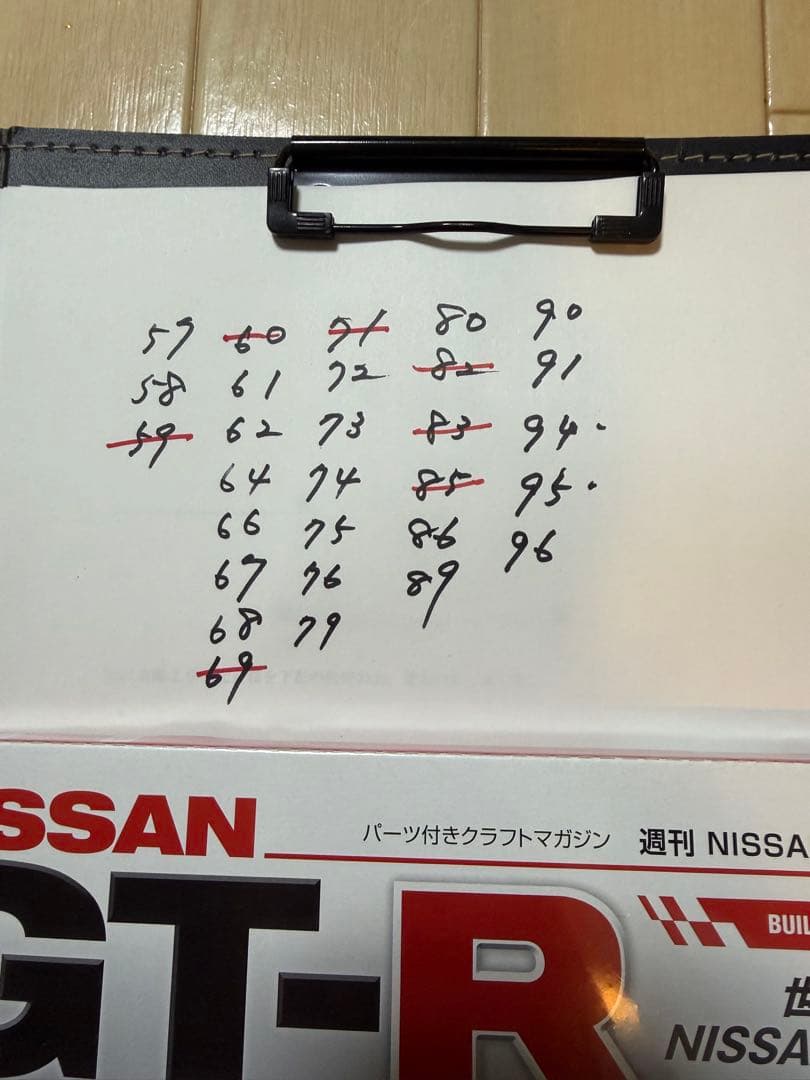 59 60 71 80 90
58 61 72 82 91
59 62 73 83 94.
64 74 85 95.
66 75 86 96
67 76 89
68 79
69
SSAN
パーツ付きクラフトマガジン 週刊 NISSA
GT-R
BUIL
世
NISSA